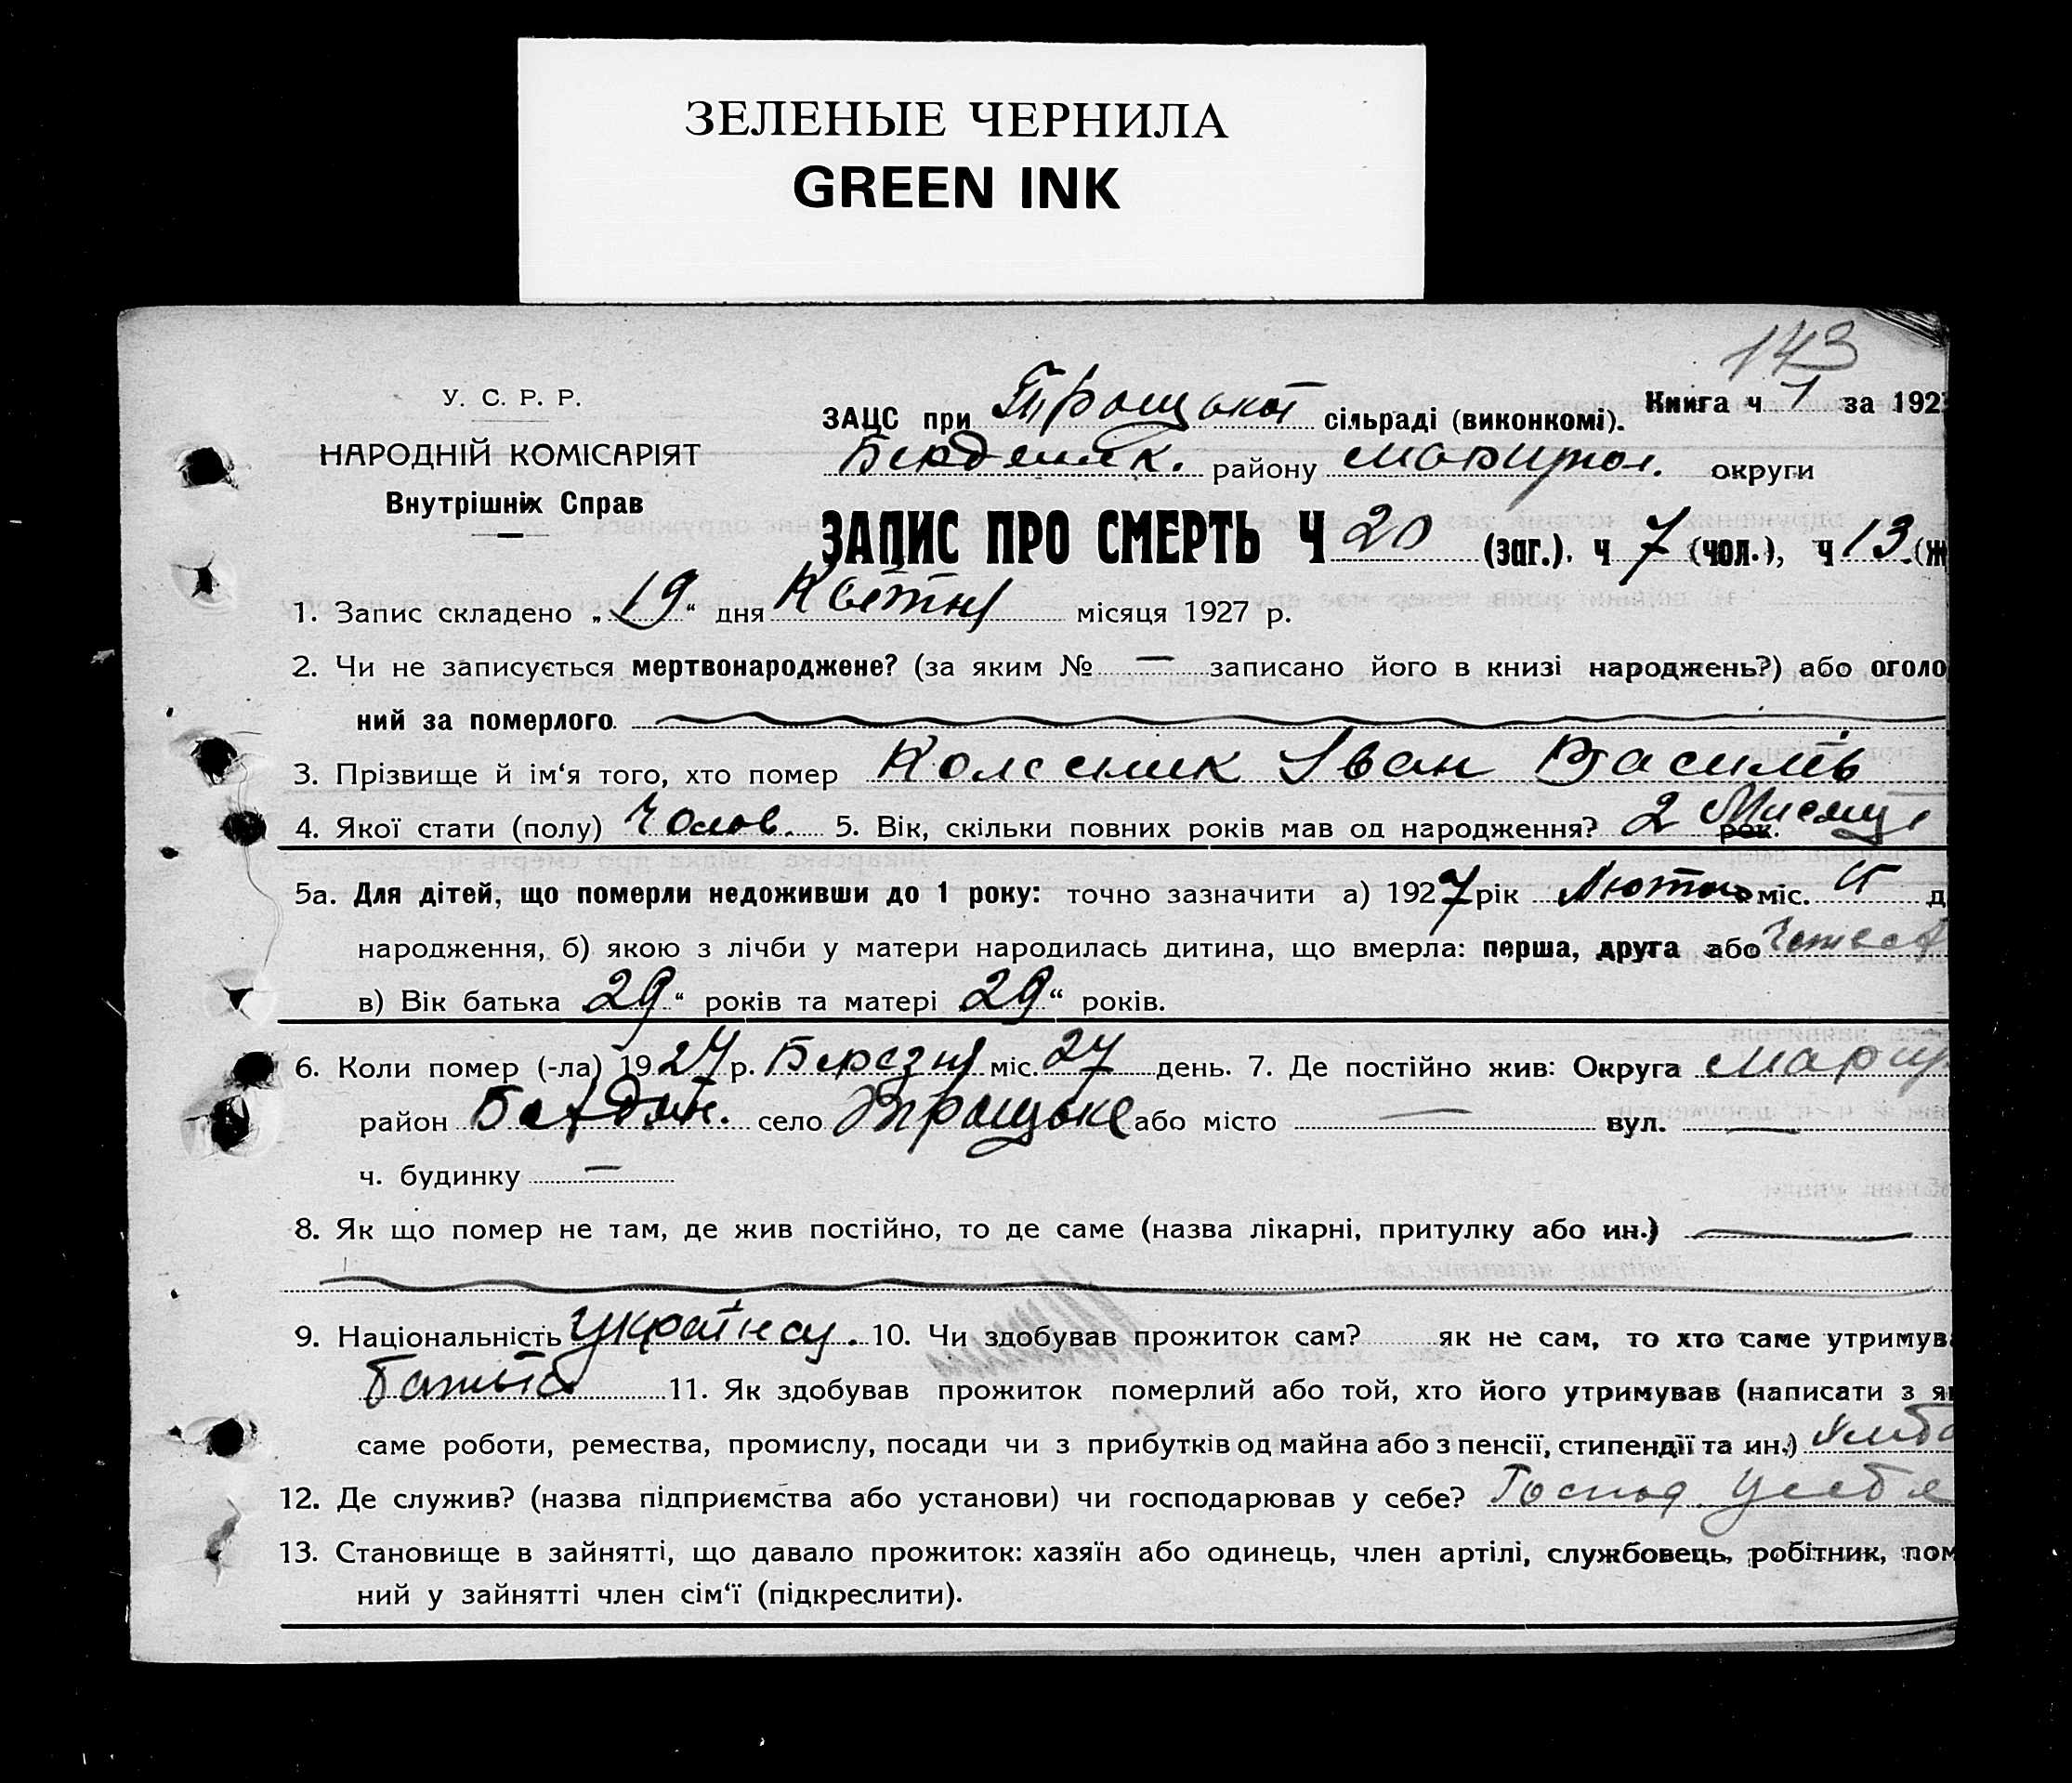 ЗЕЛЕНЫЕ ЧЕРНИЛА
GREEN INK
143
У. С. Р. Р.
НАРОДНІЙ КОМІСАРІЯТ
Внутрішніх Справ
Книга ч 1 за 192
ЗАЦС при Троцької сільраді (виконкомі).
району округи
ЗАПИС ПРО СМЕРТЬ Ч 20 (заг.). ч 7 (чол.), ч 13 (ж
1. Запис складено „19“ дня Квітня місяця 1927 р.
2. Чи не записується мертвонароджене? (за яким № — записано його в книзі народжень?) або оголо
ний за померлого
3. Прізвище й ім‘я того, хто помер Колесник Іван Василів
4. Якої стати (полу) Чолов. 5. Вік, скільки повних років мав од народження? 2 рок.
5а. Для дітей, що померли недоживши до 1 року: точно зазначити а) 1927 рік Лютого міс. д
народження, б) якою з лічби у матери народилась дитина, що вмерла: перша, друга або
в) Вік батька 29“ років та матері 29“ років.
6. Коли помер (-ла) 1927 р. Березня міс. 27 день. 7. Де постійно жив: Округа Мариу
район село або місто — вул. —
ч. будинку —
8. Як що помер не там, де жив постійно, то де саме (назва лікарні, притулку або ин.) —
9. Національність 10. Чи здобував прожиток сам? як не сам, то хто саме утримув
Батько 11. Як здобував прожиток померлий або той, хто його утримував (написати з я
саме роботи, ремества, промислу, посади чи з прибутків од майна або з пенсії, стипендії та ин.)
12. Де служив? (назва підприємства або установи) чи господарював у себе? Господ у себе
13. Становище в зайнятті, що давало прожиток: хазяїн або одинець, член артілі, службовець, робітник, пом
ний у зайнятті член сім‘ї (підкреслити).